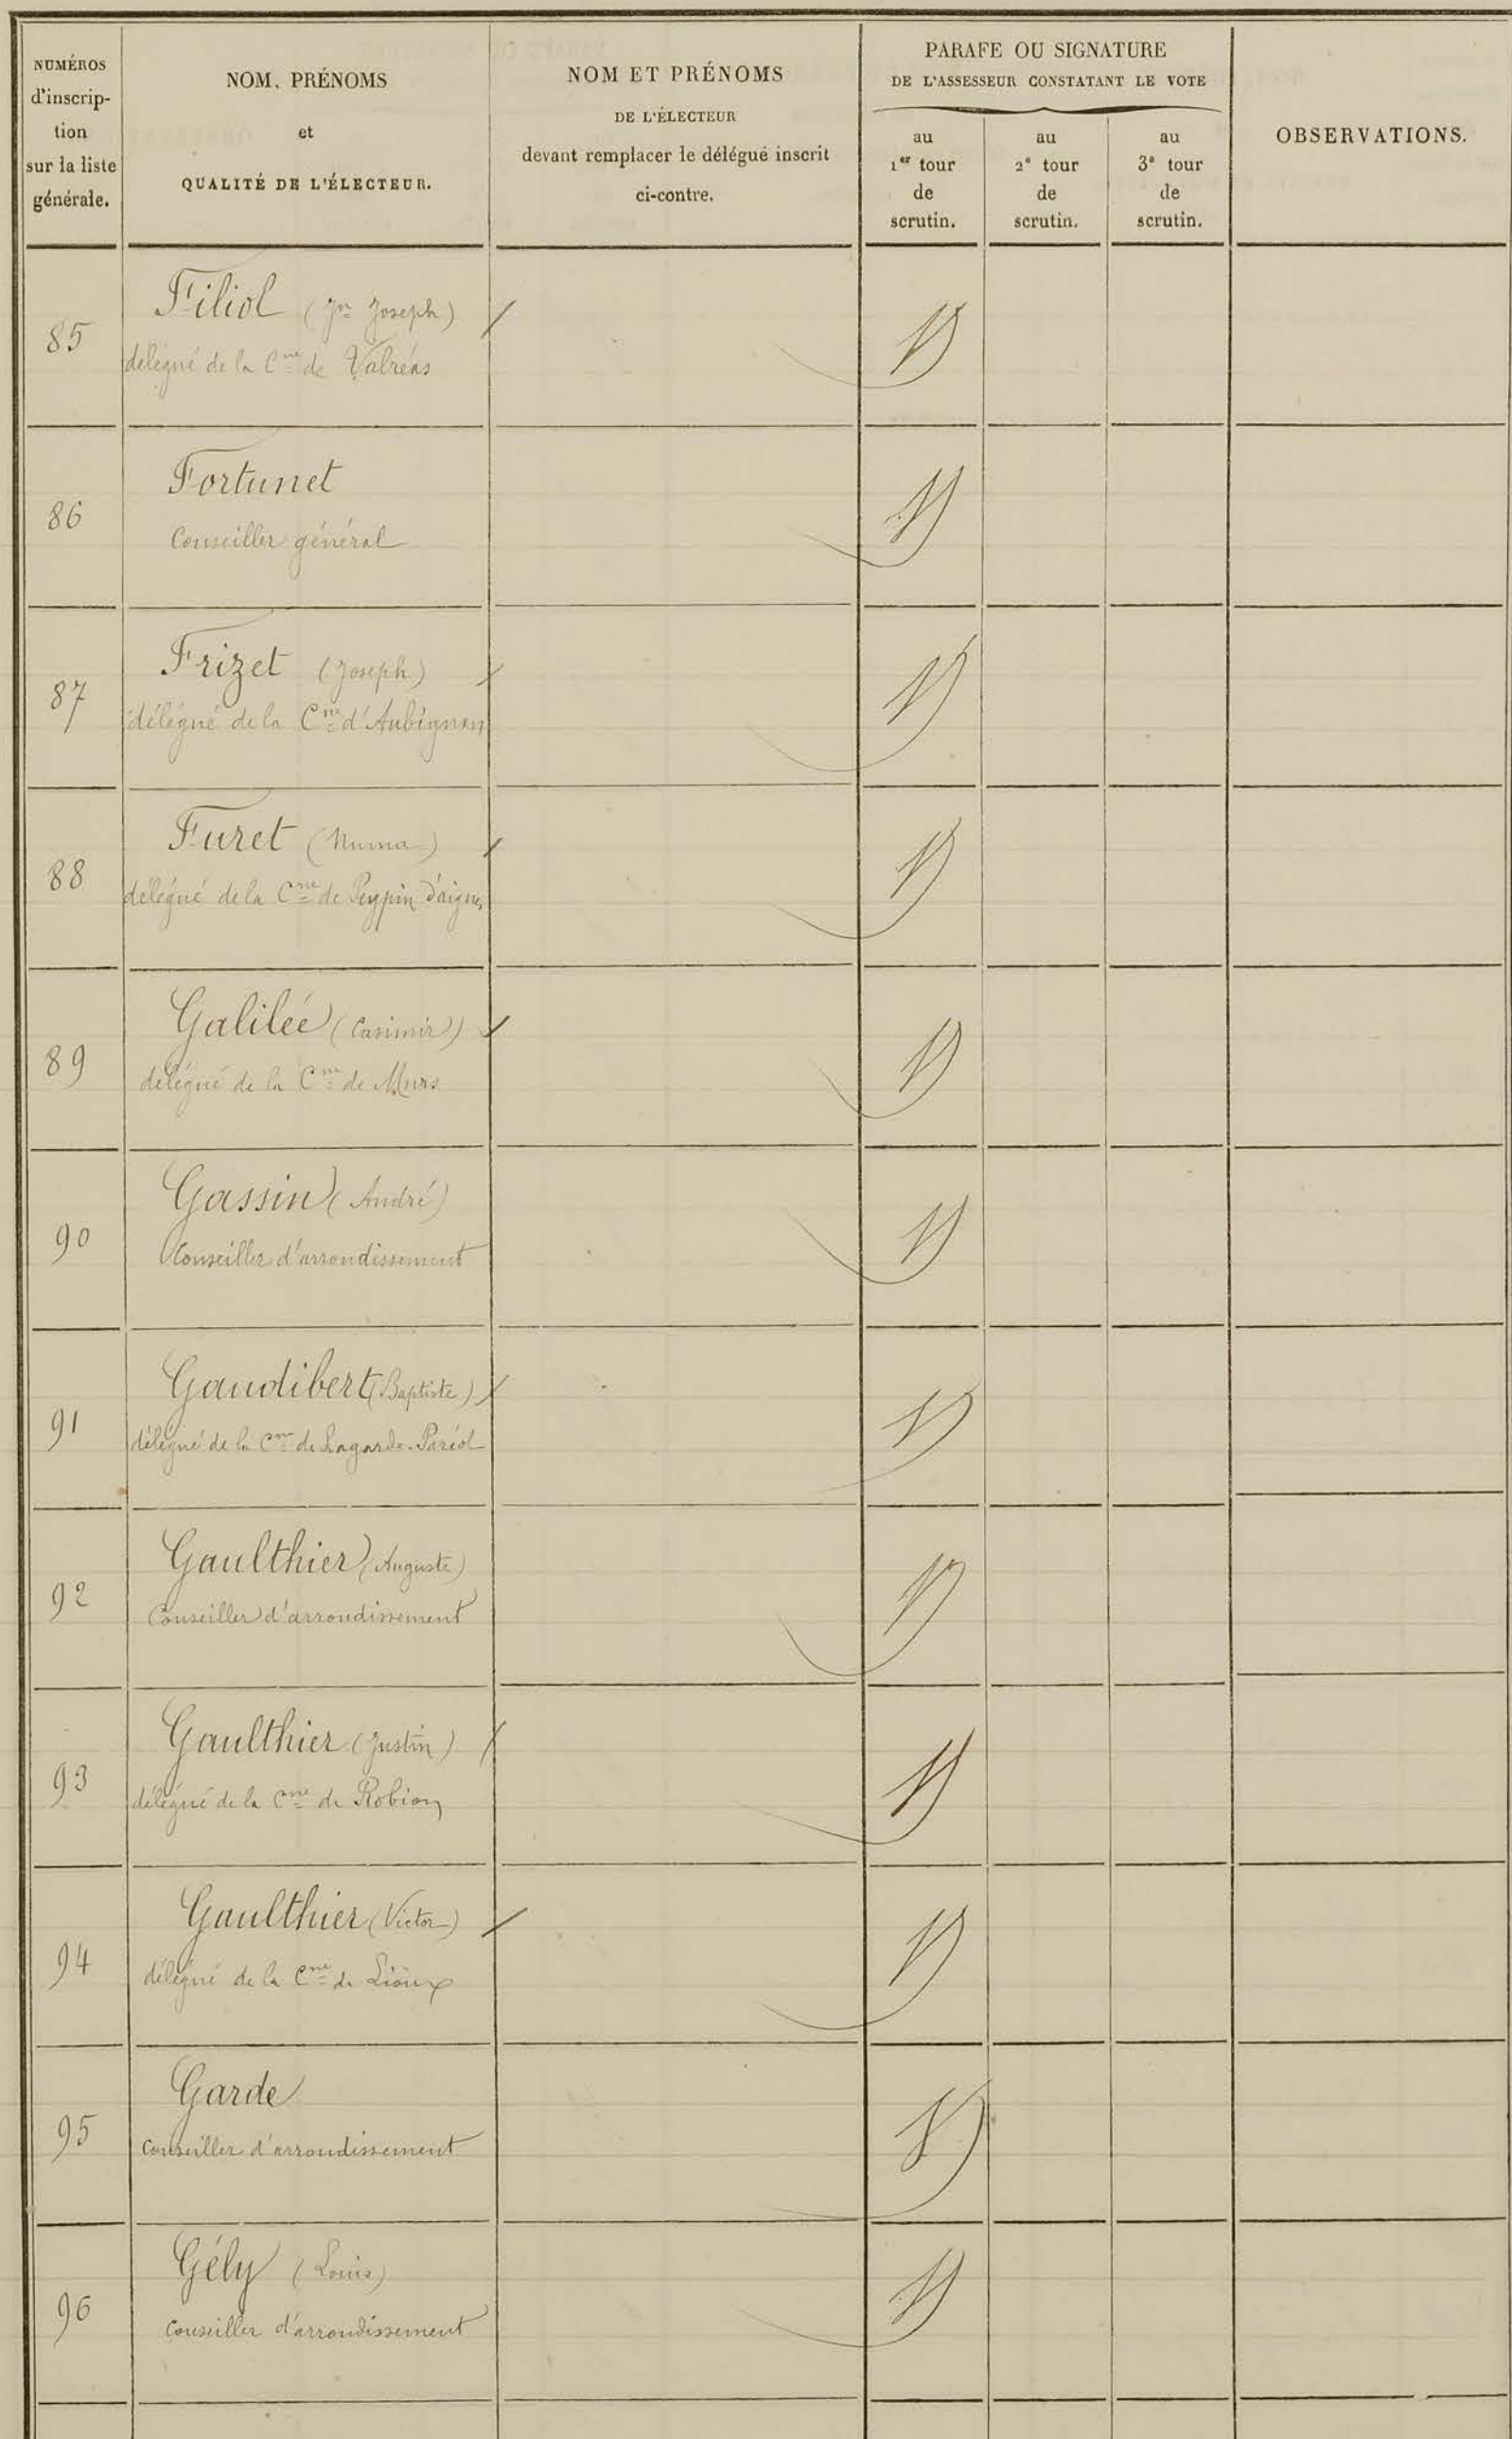 NUMÉROS
d'inscrip-
tion
sur la liste
générale.
NOM, PRÉNOMS
et
QUALITÉ DE L'ÉLECTEUR.
NOM ET PRÉNOMS
DE L'ÉLECTEUR
devant remplacer le délégué inscrit
ci-contre.
PARAFE OU SIGNATURE
DE L'ASSESSEUR CONSTATANT LE VOTE
au
1er tour
de
scrutin.
au
2e tour
de
scrutin.
au
3e tour
de
scrutin.
OBSERVATIONS.
85
Filiol (Jn Joseph)
délégué de la Cne de Valréas
86
Fortunet
Conseiller général
87
Frizet (Joseph)
délégué de la Cne d'Aubignan
88
Furet (Numa)
délégué de la Cne de Peypin d'aigues
89
Galilée (Casimir)
délégué de la Cne de Murs
90
Gassin (André)
Conseiller d'arrondissement
91
Gaudibert (Baptiste)
délégué de la Cne de Lagarde-Paréol
92
Gaulthier (Auguste)
Conseiller d'arrondissement
93
Gaulthier (Justin)
délégué de la Cne de Robion
94
Gaulthier (Victor)
délégué de la Cne de Lioux
95
Garde
Conseiller d'arrondissement
96
Gély (Louis)
Conseiller d'arrondissement